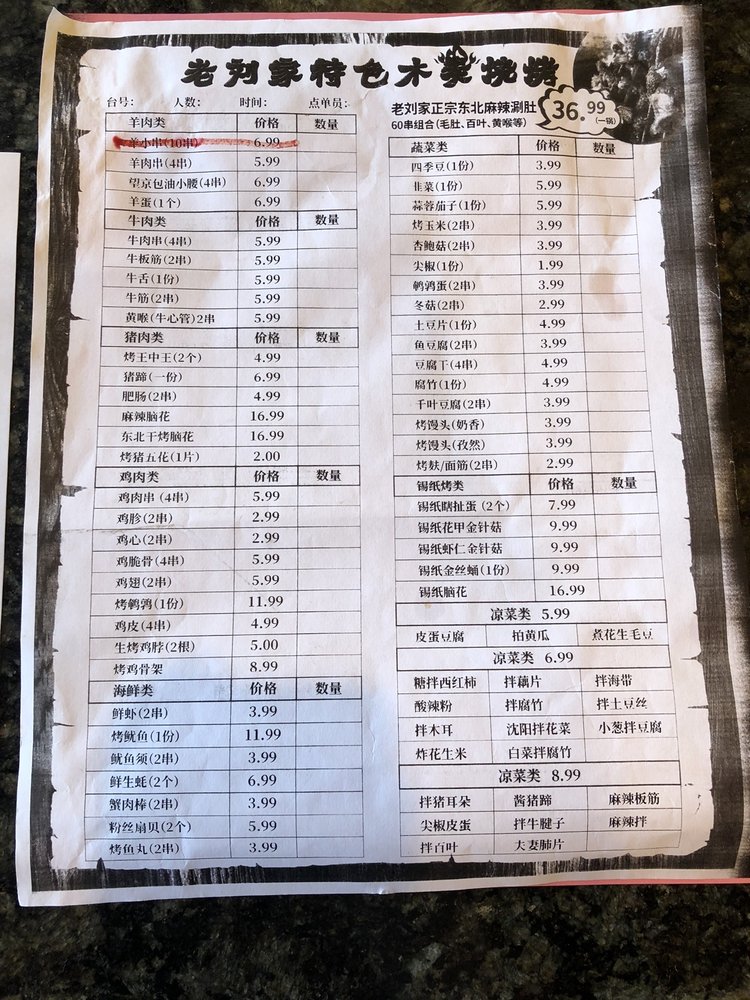 老刘家特色木炭烧烤
台号： 人数： 时间： 点单员：
羊肉类 价格 数量
羊小串(10串) 6.99
羊肉串(4串) 5.99
望京包油小腰(4串) 6.99
羊蛋(1个) 6.99
牛肉类 价格 数量
牛肉串(4串) 5.99
牛板筋(2串) 5.99
牛舌(1份) 5.99
牛筋(2串) 5.99
黄喉(牛心管)2串 5.99
猪肉类 价格 数量
烤王中王(2个) 4.99
猪蹄(一份) 6.99
肥肠(2串) 4.99
麻辣脑花 16.99
东北干烤脑花 16.99
烤猪五花(1片) 2.00
鸡肉类 价格 数量
鸡肉串 (4串) 5.99
鸡胗(2串) 2.99
鸡心(2串) 2.99
鸡脆骨(4串) 5.99
鸡翅(2串) 5.99
烤鹌鹑(1份) 11.99
鸡皮(4串) 4.99
生烤鸡脖(2根) 5.00
烤鸡骨架 8.99
海鲜类 价格 数量
鲜虾(2串) 3.99
烤鱿鱼(1份) 11.99
鱿鱼须(2串) 3.99
鲜生蚝(2个) 6.99
蟹肉棒(2串) 3.99
粉丝扇贝(2个) 5.99
烤鱼丸(2串) 3.99
老刘家正宗东北麻辣涮肚
60串组合(毛肚、百叶、黄喉等)
36.99
(一锅)
蔬菜类 价格 数量
四季豆(1份) 3.99
韭菜(1份) 5.99
蒜蓉茄子(1份) 5.99
烤玉米(2串) 3.99
杏鲍菇(2串) 3.99
尖椒(1份) 1.99
鹌鹑蛋(2串) 3.99
冬菇(2串) 2.99
土豆片(1份) 4.99
鱼豆腐(2串) 3.99
豆腐干(4串) 4.99
腐竹(1份) 4.99
千叶豆腐(2串) 3.99
烤馒头(奶香) 3.99
烤馒头(孜然) 3.99
烤麸/面筋(2串) 2.99
锡纸烤类 价格 数量
锡纸瞎扯蛋 (2个) 7.99
锡纸花甲金针菇 9.99
锡纸虾仁金针菇 9.99
锡纸金丝蛹(1份) 9.99
锡纸脑花 16.99
凉菜类 5.99
皮蛋豆腐 拍黄瓜 煮花生毛豆
凉菜类 6.99
糖拌西红柿 拌藕片 拌海带
酸辣粉 拌腐竹 拌土豆丝
拌木耳 沈阳拌花菜 小葱拌豆腐
炸花生米 白菜拌腐竹
凉菜类 8.99
拌猪耳朵 酱猪蹄 麻辣板筋
尖椒皮蛋 拌牛腱子 麻辣拌
拌百叶 夫妻肺片